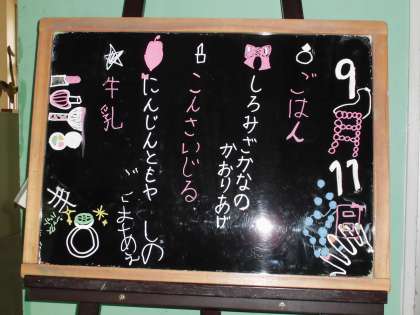 9月11日
ごはん
しろみざかなの
かおりあげ
こんさいじる
にんじんともやしの
ごまあえ
牛乳